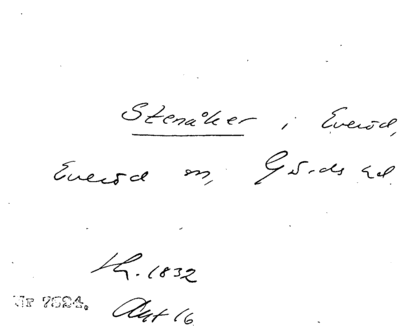 Stenåker i Everöd,
Everöd sn, Gärds hd
Lh. 1832
Nr 7024. Akt 16